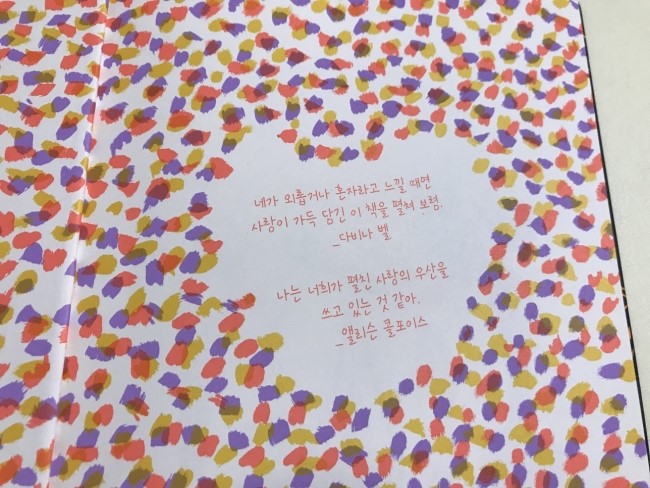 네가 외롭거나 혼자라고 느낄 때면
사랑이 가득 담긴 이 책을 펼쳐 보렴.
_다비나 벨
나는 너희가 펼친 사랑의 우산을
쓰고 있는 것 같아.
_앨리슨 콜포이스